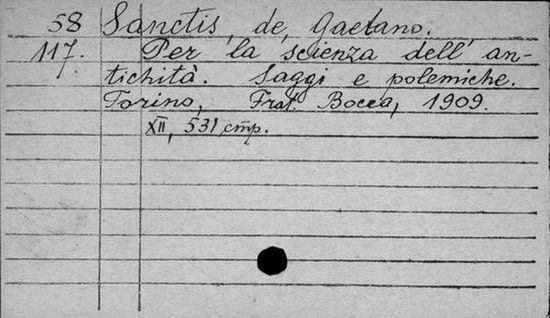 58 Sanctis, de, Gaetano.
117. Per la scienza dell' an-
tichità. Saggi e polemiche.
Torino, Frat. Bocca, 1909.
XII, 531 cmp.